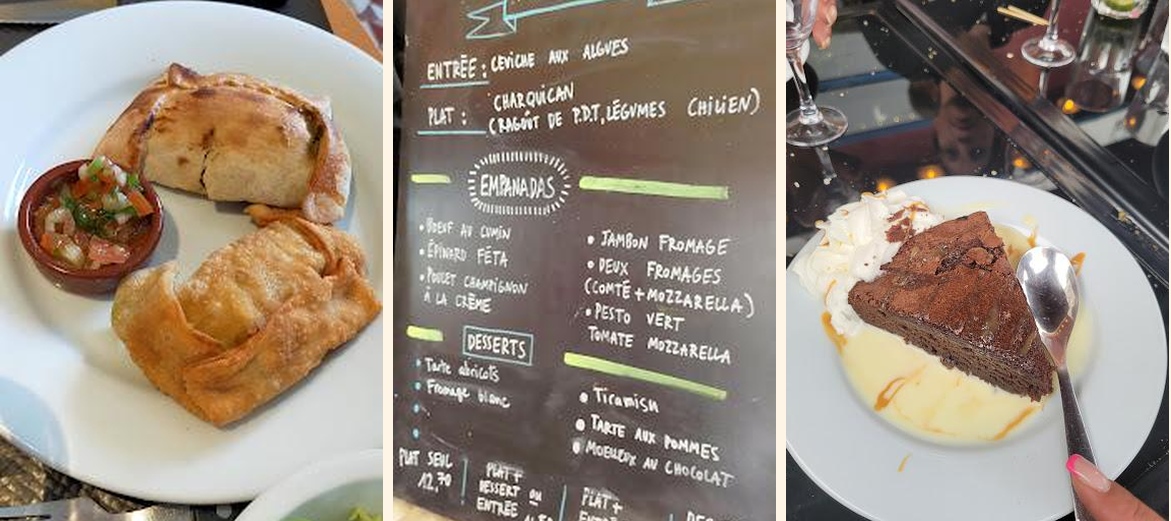 ENTRÉE : CEVICHE AUX ALGUES
PLAT : CHARQUICAN
(RAGOÛT DE P.D.T, LÉGUMES CHILIEN)
EMPANADAS
• BOEUF AU CUMIN
• ÉPINARD FÉTA
• POULET CHAMPIGNON
À LA CRÈME
• JAMBON FROMAGE
• DEUX FROMAGES
(COMTÉ + MOZZARELLA)
• PESTO VERT
TOMATE MOZZARELLA
DESSERTS
• Tarte abricots
• Fromage blanc
• Tiramisu
• TARTE AUX POMMES
• MOELLEUX AU CHOCOLAT
PLAT SEUL
12,70
PLAT +
DESSERT OU
ENTRÉE
PLAT +